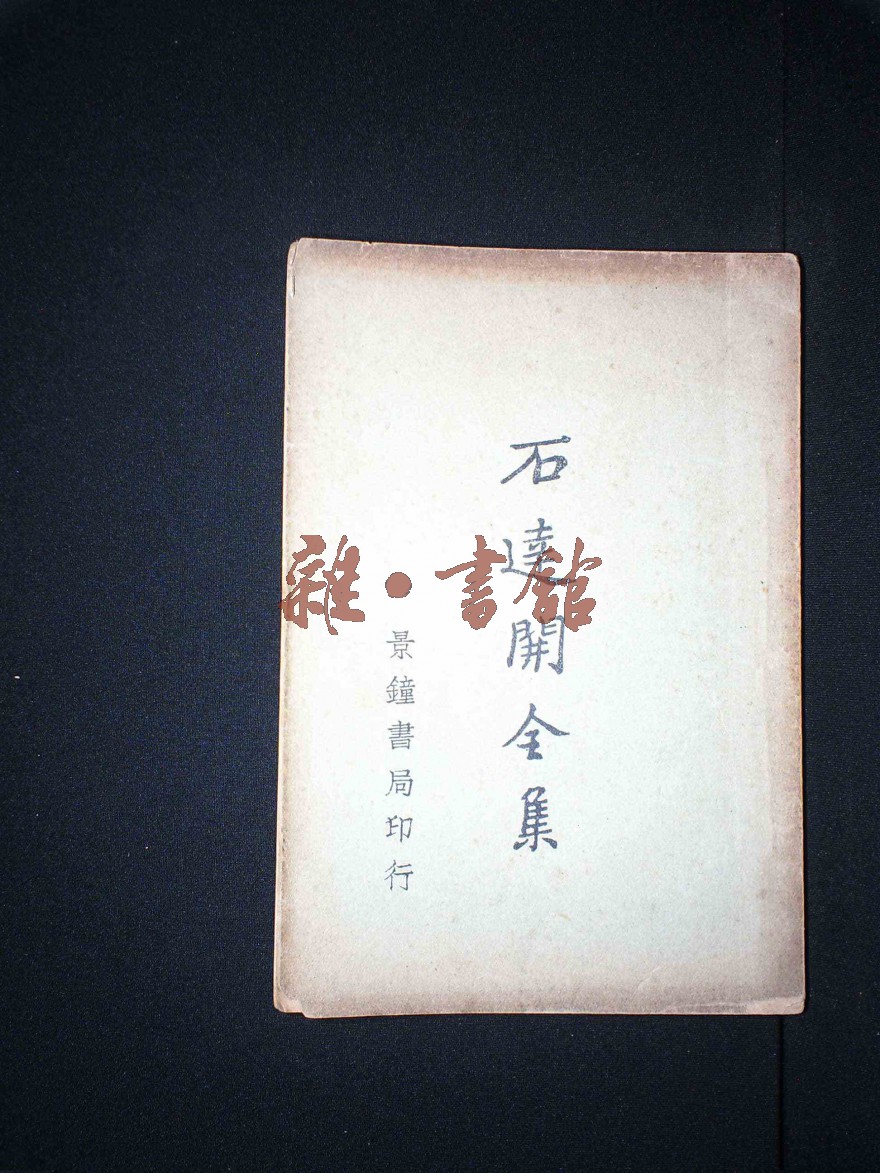 石達開全集
景鐘書局印行
雜·書館